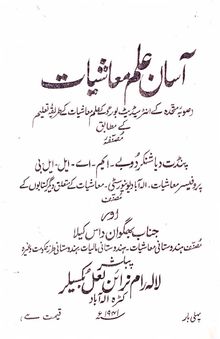 آسان علم معاشیات
(صوبہ متحدہ کے انٹرمیڈیٹ بورڈ کے علم معاشیات کے طریقۂ تعلیم
کے مطابق
مصنفہ
پنڈت دیاشنکر دوبے۔ ایم۔ اے۔ ایل۔ ایل بی
پروفیسر معاشیات۔ الہ آباد یونیورسٹی۔ معاشیات کے متعلق دیگر کتابوں کے
مصنف
اور
جناب بھگوان داس کیلا
مصنف ہندوستانی معاشیات۔ ہندوستانی مالیات ہندوستانی طرز حکومت وغیرہ
پبلشر
لالہ رام نرائن لعل بکسیلر
کٹرہ الہ آباد
پہلی بار ۱۹۴۱ء قیمت